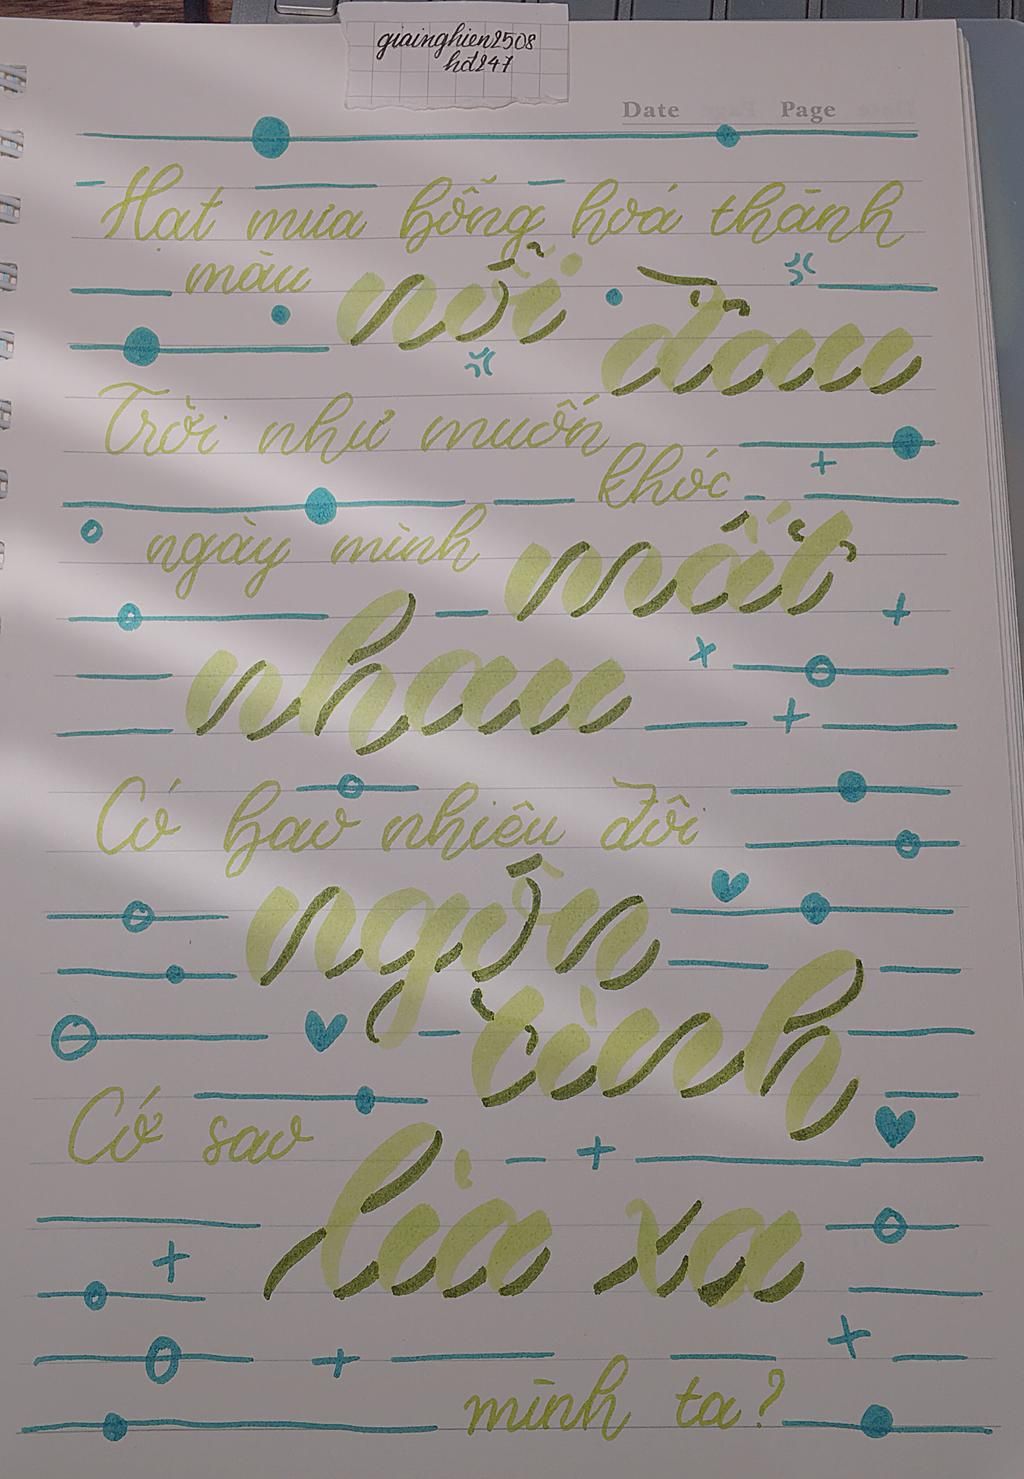 giainghien2508
hđ247
Date Page
Hạt mưa bỗng hoá thành
màu nỗi đau
Trời như muốn
khóc
ngày mình mất
nhau
Có bao nhiêu đôi
ngôn
tình
Cớ sao
lìa xa
mình ta?